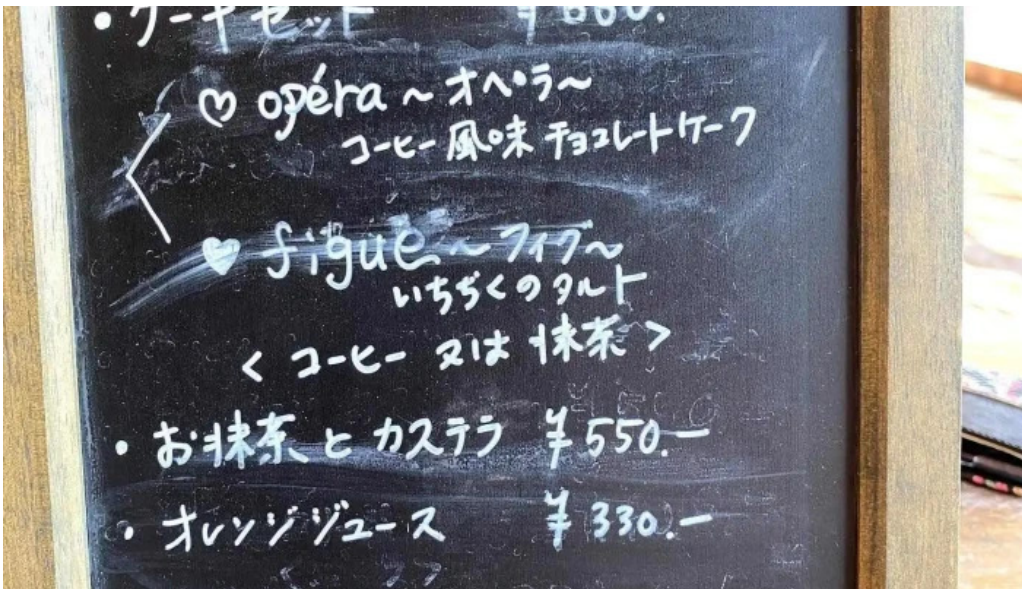 ・ケーキセット ¥660.
♡ opéra ～オペラ～
コーヒー風味 チョコレートケーク
♥ figue ～フィグ～
いちぢくのタルト
< コーヒー 又は 抹茶 >
・お抹茶とカステラ ¥550.―
・オレンジジュース ¥330.―